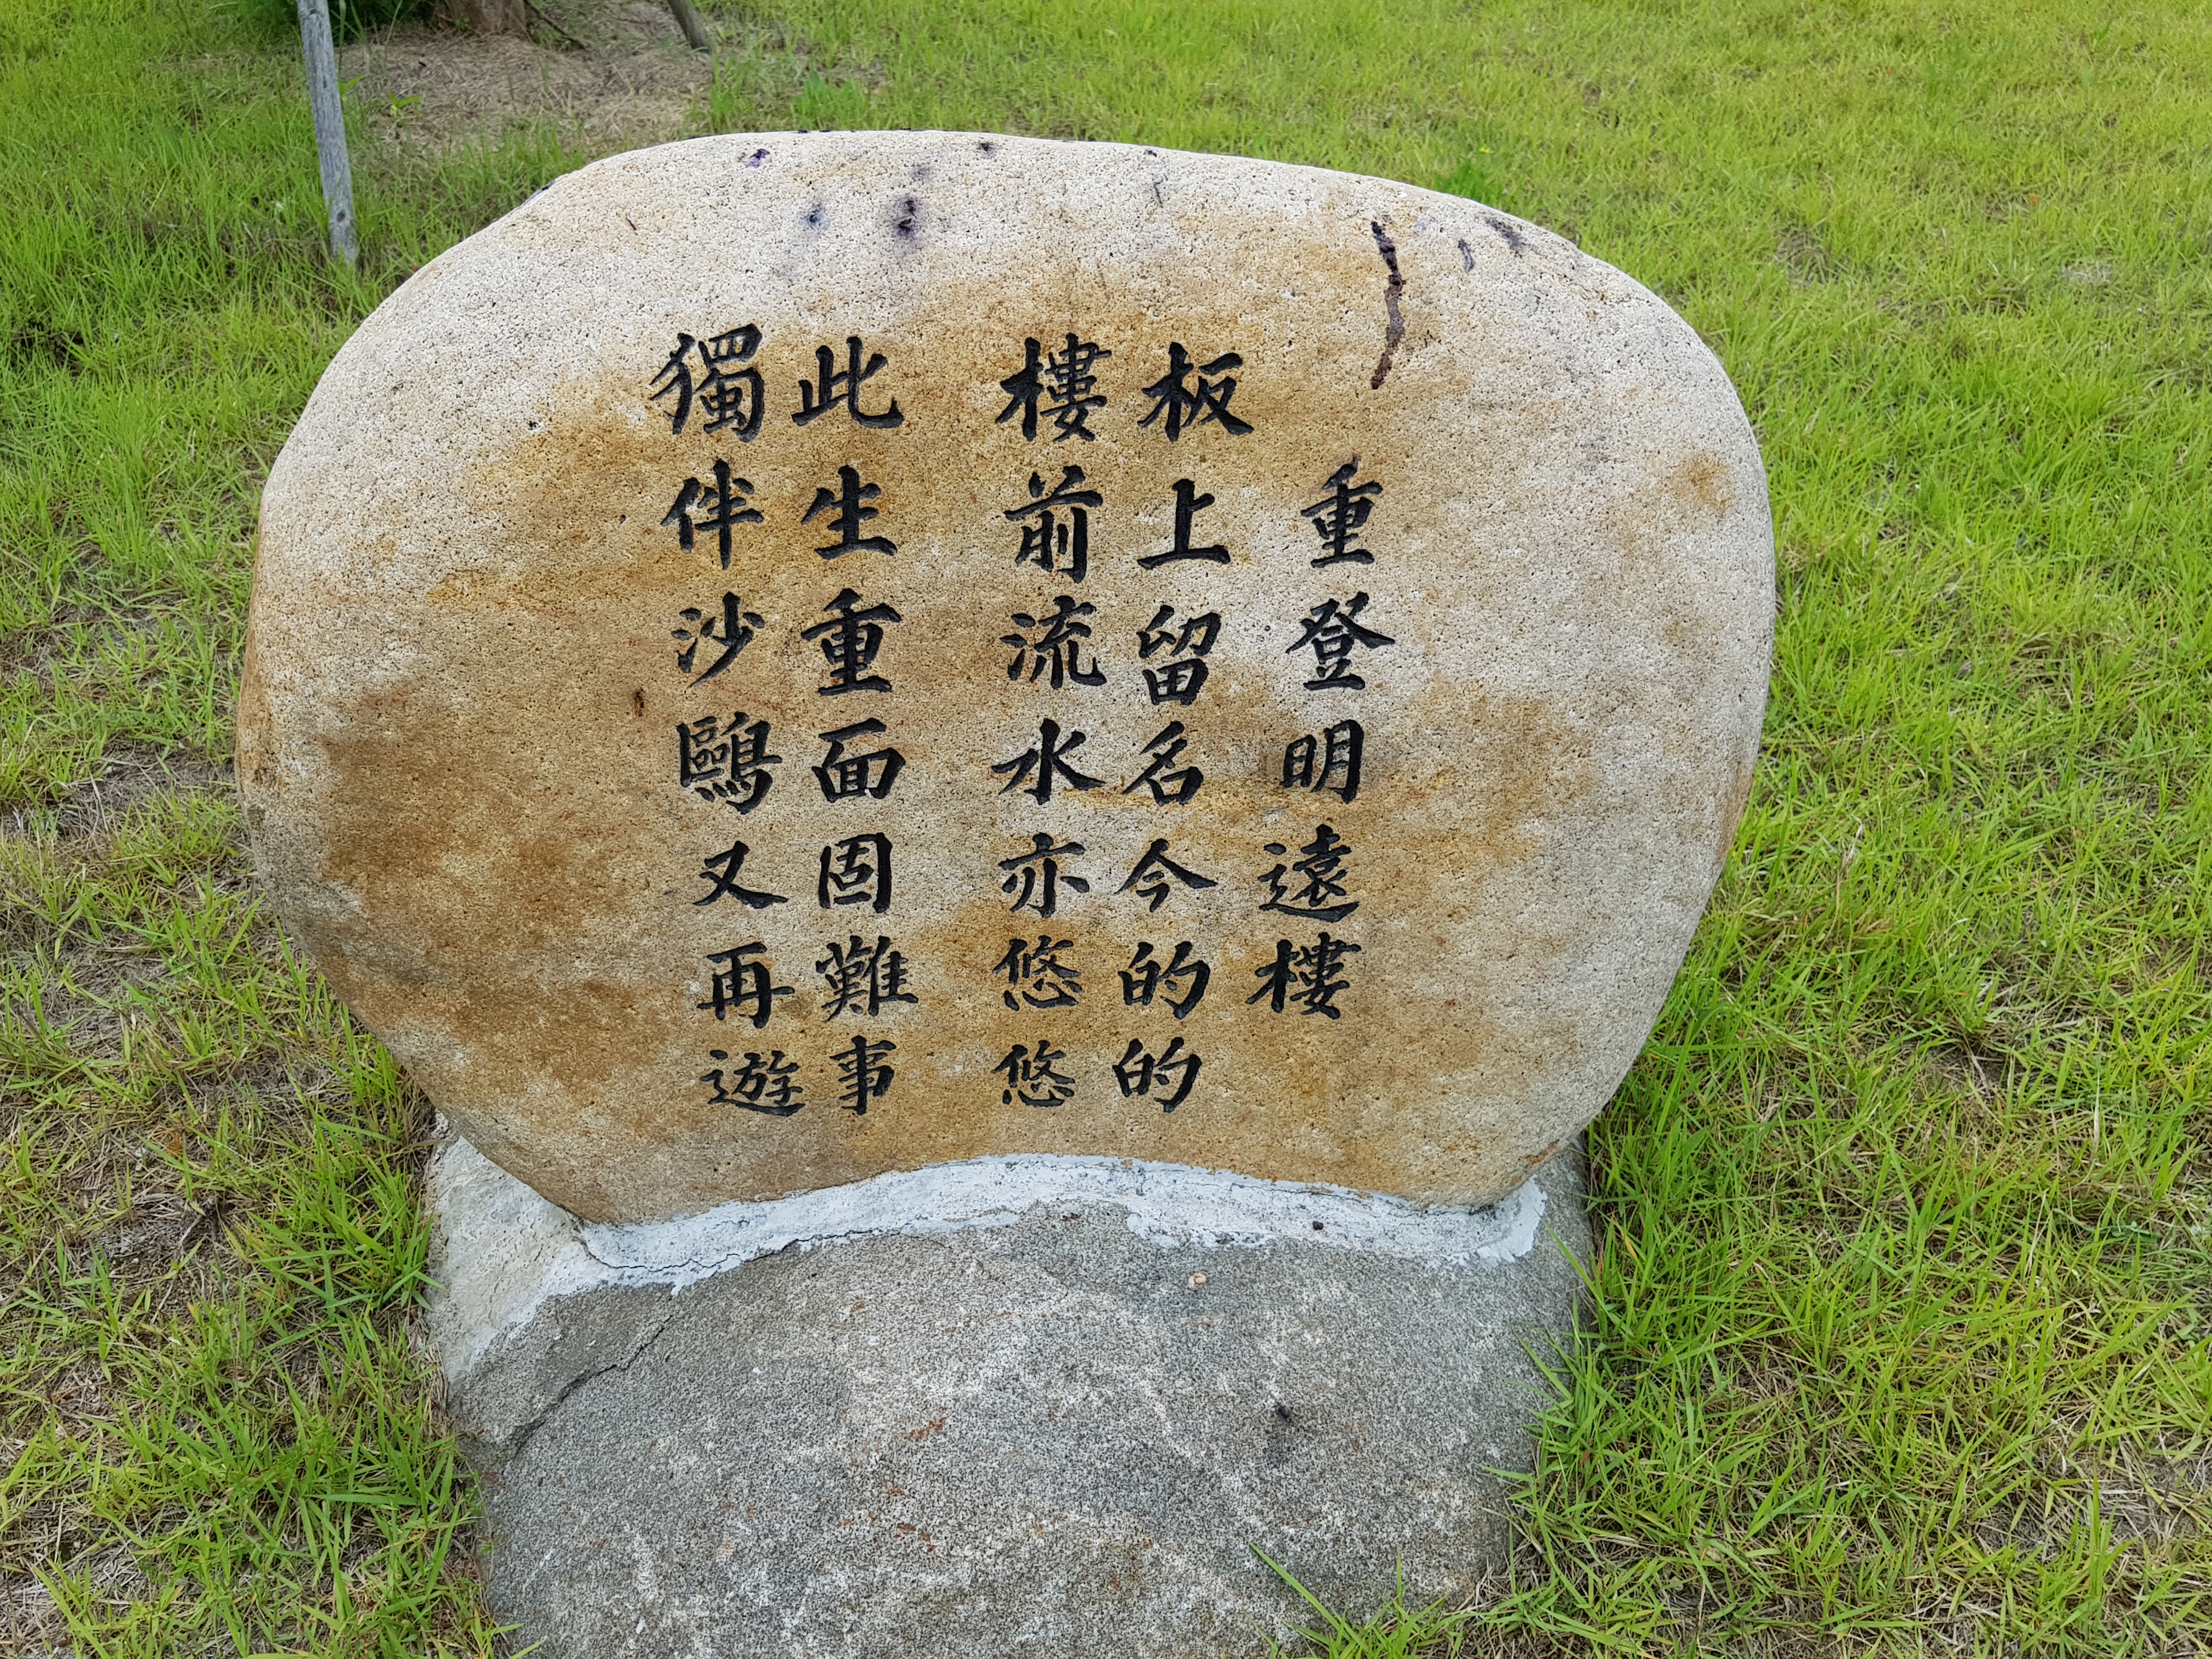 重登明遠樓
板上留名今的的
樓前流水亦悠悠
此生重面固難事
獨伴沙鷗又再遊